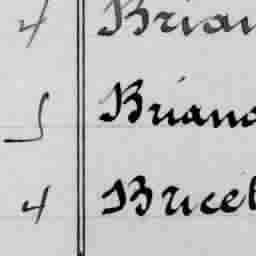 4 Brian
5 Briand
4 Bricel